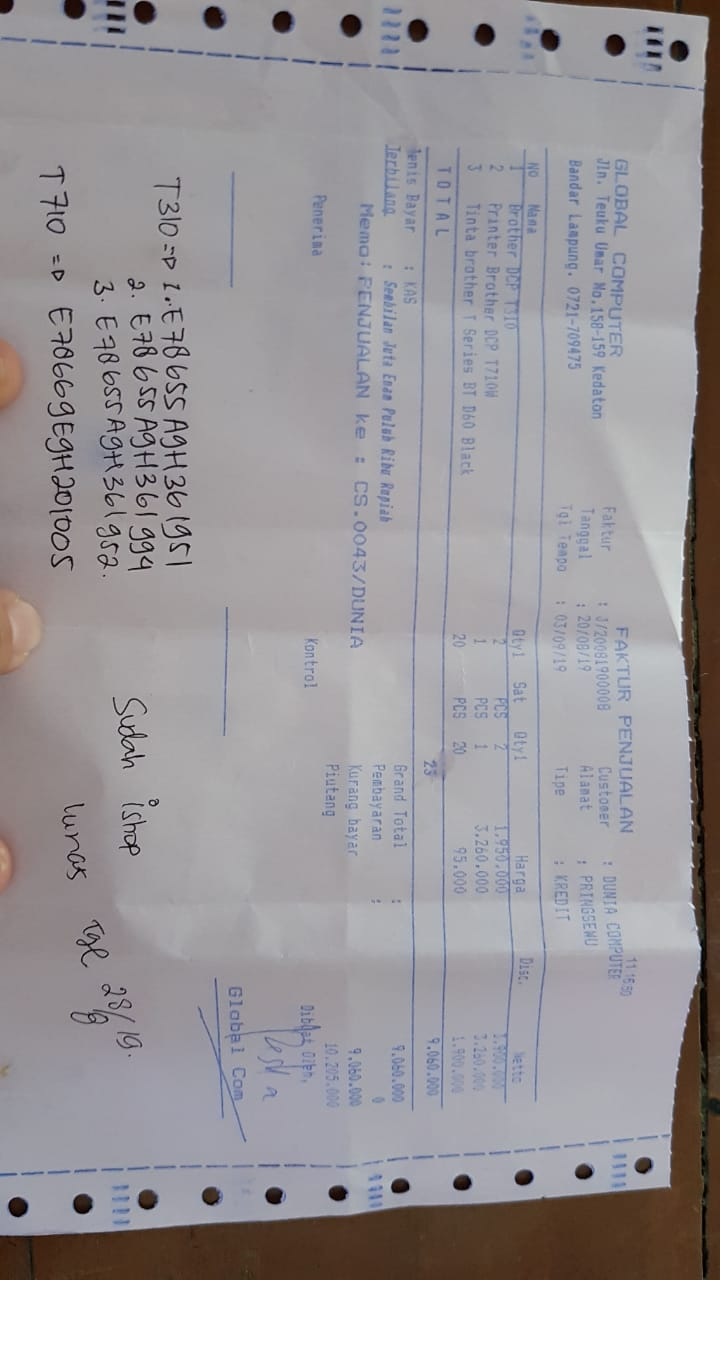 11:15:50
GLOBAL COMPUTER FAKTUR PENJUALAN
Jln. Teuku Umar No.158-159 Kedaton Faktur : J/20081900008 Customer : DUNIA COMPUTER
Bandar Lampung. 0721-709475 Tanggal : 20/08/19 Alamat : PRINGSEWU
Tgl Tempo : 03/09/19 Tipe : KREDIT
NO Nama Qty1 Sat Qty1 Harga Disc. Netto
1 Brother DCP T310 2 PCS 2 1.950.000 3.900.000
2 Printer Brother DCP T710W 1 PCS 1 3.260.000 3.260.000
3 Tinta brother T Series BT D60 Black 20 PCS 20 95.000 1.900.000
TOTAL 23 9.060.000
Jenis Bayar : KAS Grand Total : 9.060.000
Terbilang : Sembilan Juta Enam Puluh Ribu Rupiah Pembayaran : 0
Memo: PENJUALAN ke : CS.0043/DUNIA Kurang bayar 9.060.000
Piutang 10.205.000
Penerima Kontrol Dibuat Oleh,
Global Com
T310 => 1. E78655A9H361951
2. E78655A9H361994
3. E78655A9H361952.
T710 => E78669E9H201005
Sudah ishop
lunas Tgl 28/8 19.